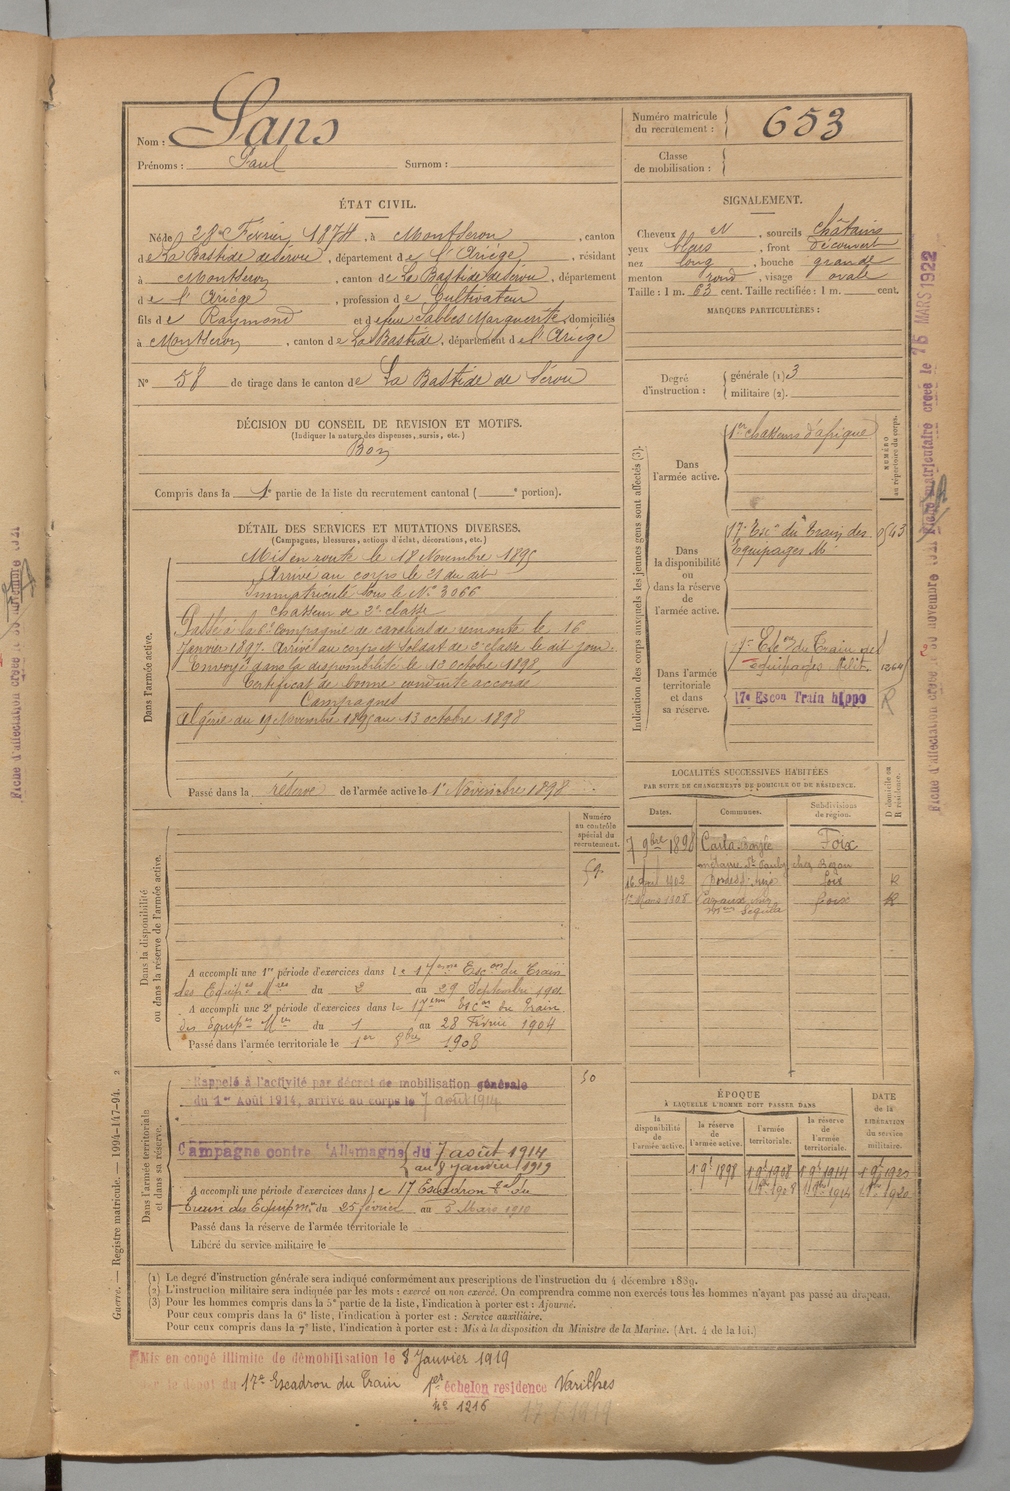 Nom : Sans
Prénoms : Paul Surnom :
Numéro matricule du recrutement : 653
Classe de mobilisation :
ÉTAT CIVIL.
Né le 28 Février 1874, à Montseron, canton
de La Bastide de Sérou, département de l'Ariège, résidant
à Montseron, canton de La Bastide de Sérou, département
de l'Ariège, profession de Cultivateur
fils de Raymond et de feue Sabbes Marguerite, domiciliés
à Montseron, canton de La Bastide, département de l'Ariège
N° 58 de tirage dans le canton de La Bastide de Sérou
SIGNALEMENT.
Cheveux N, sourcils châtains
yeux bleus, front découvert
nez long, bouche grande
menton rond, visage ovale
Taille : 1 m. 63 cent. Taille rectifiée : 1 m. cent.
MARQUES PARTICULIÈRES :
Degré d'instruction : générale (1) 3
militaire (2).
DÉCISION DU CONSEIL DE REVISION ET MOTIFS.
(Indiquer la nature des dispenses, sursis, etc.)
Bon
Compris dans la 1e partie de la liste du recrutement cantonal ( e portion).
DÉTAIL DES SERVICES ET MUTATIONS DIVERSES.
(Campagnes, blessures, actions d'éclat, décorations, etc.)
Dans l'armée active.
Mis en route le 18 Novembre 1895
Arrivé au corps le 21 du dit
Immatriculé sous le N° 3066
chasseur de 2e classe
Passé à la 6e Compagnie de cavaliers de remonte le 16
Janvier 1897. Arrivé au corps et soldat de 2e classe le dit jour.
Envoyé dans la disponibilité le 13 octobre 1898
Certificat de bonne conduite accordé
Campagnes
Algérie du 19 Novembre 1895 au 13 octobre 1898
Passé dans la réserve de l'armée active le 1er Novembre 1898
Indication des corps auxquels les jeunes gens sont affectés (3).
NUMÉRO au répertoire du corps.
Dans l'armée active.
1er chasseurs d'afrique
Dans la disponibilité ou dans la réserve de l'armée active.
17e Escon du Train des
Equipages Mres
0543
Dans l'armée territoriale et dans sa réserve.
17e Escon du Train des
équipages Milit.
1264
17e Escon Train hippo
R
LOCALITÉS SUCCESSIVES HABITÉES
PAR SUITE DE CHANGEMENTS DE DOMICILE OU DE RÉSIDENCE.
Dates. Communes. Subdivisions de région. D domicile ou R résidence.
7 9bre 1898 Carla Foix
16 avril 1902 Foix R
1er Mars 1908 Foix R
Dans la disponibilité ou dans la réserve de l'armée active.
Numéro au contrôle spécial du recrutement.
59
A accompli une 1re période d'exercices dans le 17eme Escon du Train
des Equipes Mres du 2 au 29 Septembre 1901
A accompli une 2e période d'exercices dans le 17eme Escon du Train
des Equipes Mres du 1 au 28 Février 1904
Passé dans l'armée territoriale le 1er 8bre 1908
Dans l'armée territoriale et dans sa réserve.
50
Rappelé à l'activité par décret de mobilisation générale
du 1er Août 1914, arrivé au corps le 7 août 1914
Campagne contre l'Allemagne du 7 août 1914
au 8 janvier 1919
A accompli une période d'exercices dans le 17 Escadron du
Train des Equipes du 25 février au 5 Mars 1910
Passé dans la réserve de l'armée territoriale le
Libéré du service militaire le
ÉPOQUE
À LAQUELLE L'HOMME DOIT PASSER DANS
DATE de la LIBÉRATION du service militaire.
la disponibilité de l'armée active. la réserve de l'armée active. l'armée territoriale. la réserve de l'armée territoriale.
1 9e 1898 1 9e 1908 1 9e 1914 1 9e 1920
1908 1914 1920
(1) Le degré d'instruction générale sera indiqué conformément aux prescriptions de l'instruction du 4 décembre 1889.
(2) L'instruction militaire sera indiquée par les mots : exercé ou non exercé. On comprendra comme non exercés tous les hommes n'ayant pas passé au drapeau.
(3) Pour les hommes compris dans la 5e partie de la liste, l'indication à porter est : Ajourné.
Pour ceux compris dans la 6e liste, l'indication à porter est : Service auxiliaire.
Pour ceux compris dans la 7e liste, l'indication à porter est : Mis à la disposition du Ministre de la Marine. (Art. 4 de la loi.)
Mis en congé illimité de démobilisation le 8 Janvier 1919
par le dépôt du 17e Escadron du Train 1er échelon residence Varilhes
n° 1216
17.1.1919
Guerre. — Registre matricule. — 1994-147-94. 2
Fiche d'affectation créée le 30 novembre 1921 Fiche matriculaire créée le 16 MARS 1922
Fiche d'affectation créée le 30 novembre 1921